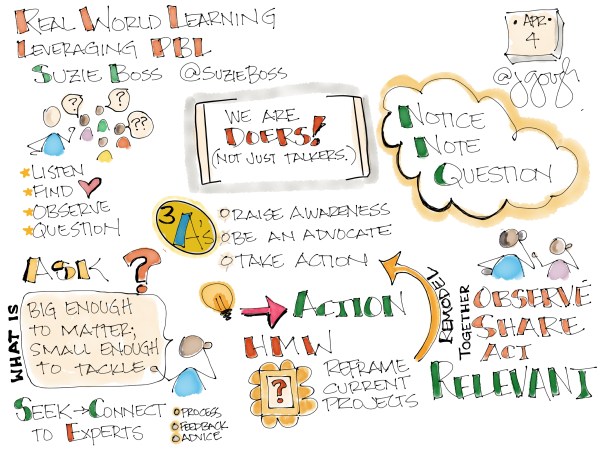 REAL WORLD LEARNING
LEVERAGING PBL
SUZIE BOSS @SUZIEBOSS
APR
4
@jgough
?
?
??
★LISTEN
★FIND
★OBSERVE
★QUESTION
WE ARE
DOERS!
(NOT JUST TALKERS.)
NOTICE
NOTE
QUESTION
3 A's
RAISE AWARENESS
BE AN ADVOCATE
TAKE ACTION
ASK ?
WHAT IS
BIG ENOUGH
TO MATTER;
SMALL ENOUGH
TO TACKLE.
SEEK→CONNECT
TO EXPERTS
PROCESS
FEEDBACK
ADVICE
ACTION
HMW
?
REFRAME
CURRENT
PROJECTS
REMODEL
TOGETHER
OBSERVE
SHARE
ACT
RELEVANT